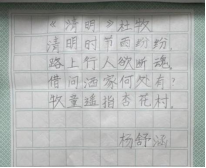 《清明》杜牧
清明时节雨纷纷,
路上行人欲断魂。
借问酒家何处有?
牧童遥指杏花村。
杨舒涵